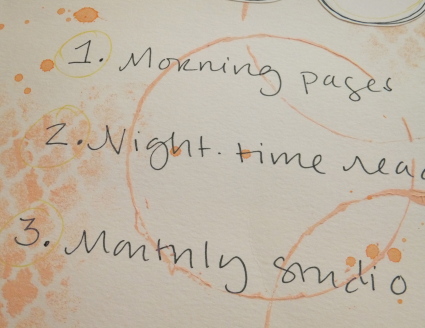 1. Morning pages
2. Night-time read
3. Monthly studio